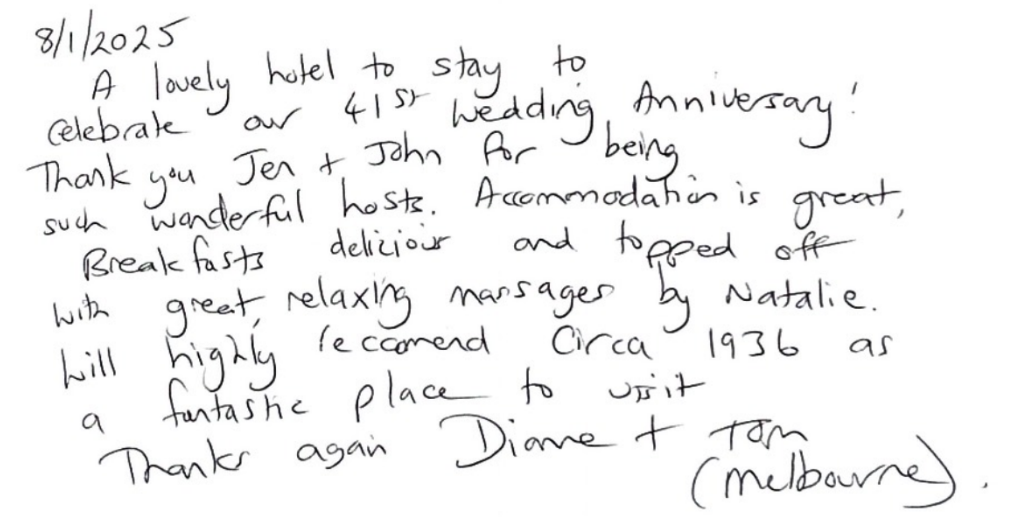 8/1/2025
A lovely hotel to stay to
celebrate our 41st Wedding Anniversary!
Thank you Jen + John for being
such wonderful hosts. Accommodation is great,
Breakfasts delicious and topped off
with great, relaxing massages by Natalie.
Will highly reccomend Circa 1936 as
a fantastic place to visit
Thanks again Diane + Tom
(Melbourne).